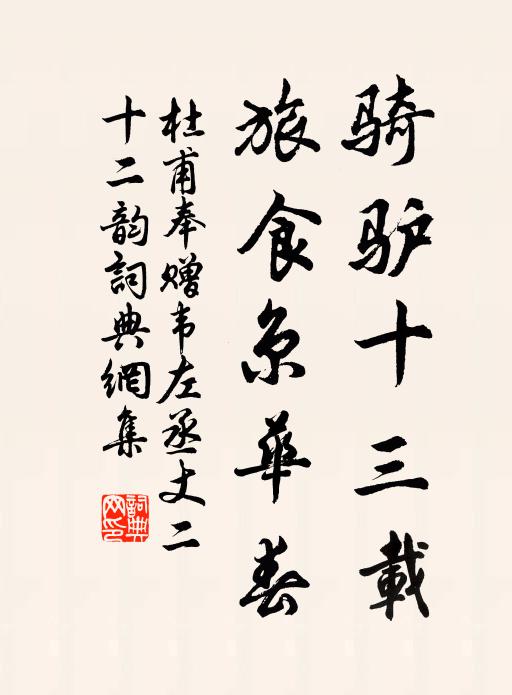 骑驴十三载
旅食京華春
杜甫奉赠韦左丞丈二
十二韵詞典網集
詞典
网印